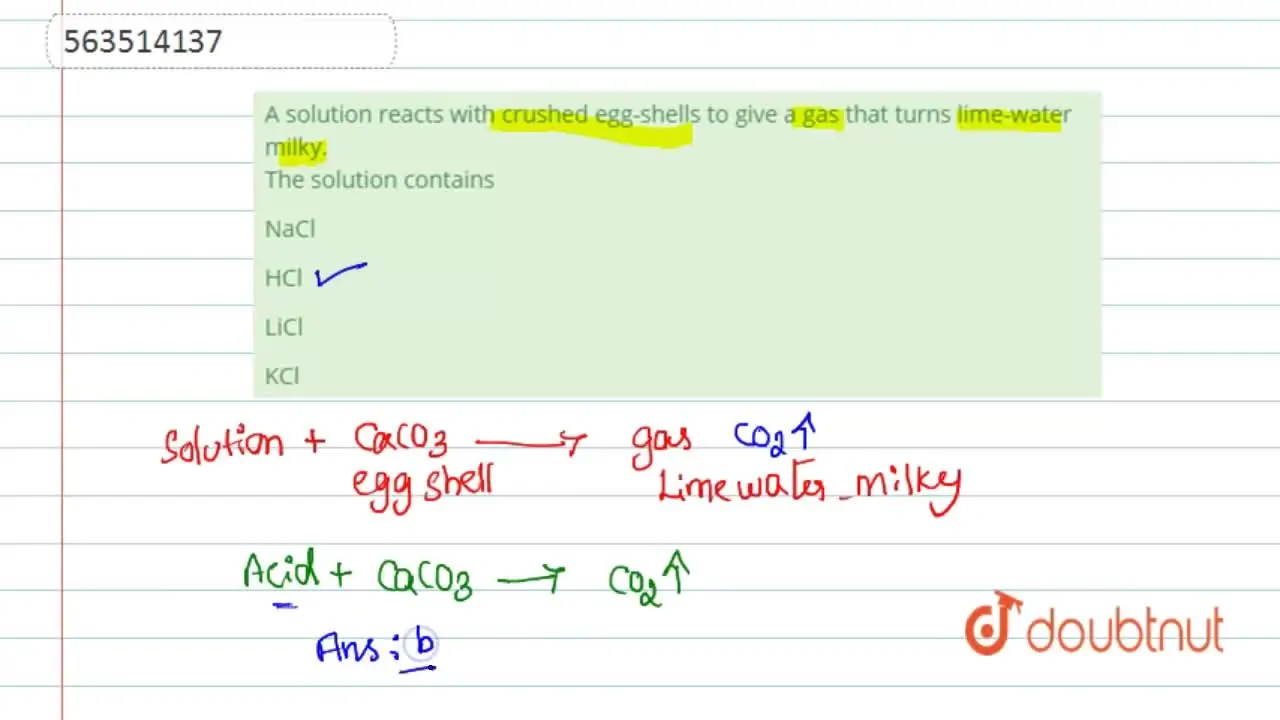 563514137
A solution reacts with crushed egg-shells to give a gas that turns lime-water
milky.
The solution contains
NaCl
HCl ✓
LiCl
KCl
Solution + CaCO3 → gas CO2↑
egg shell Lime water - milky
Acid + CaCO3 → CO2↑
Ans : b
doubtnut